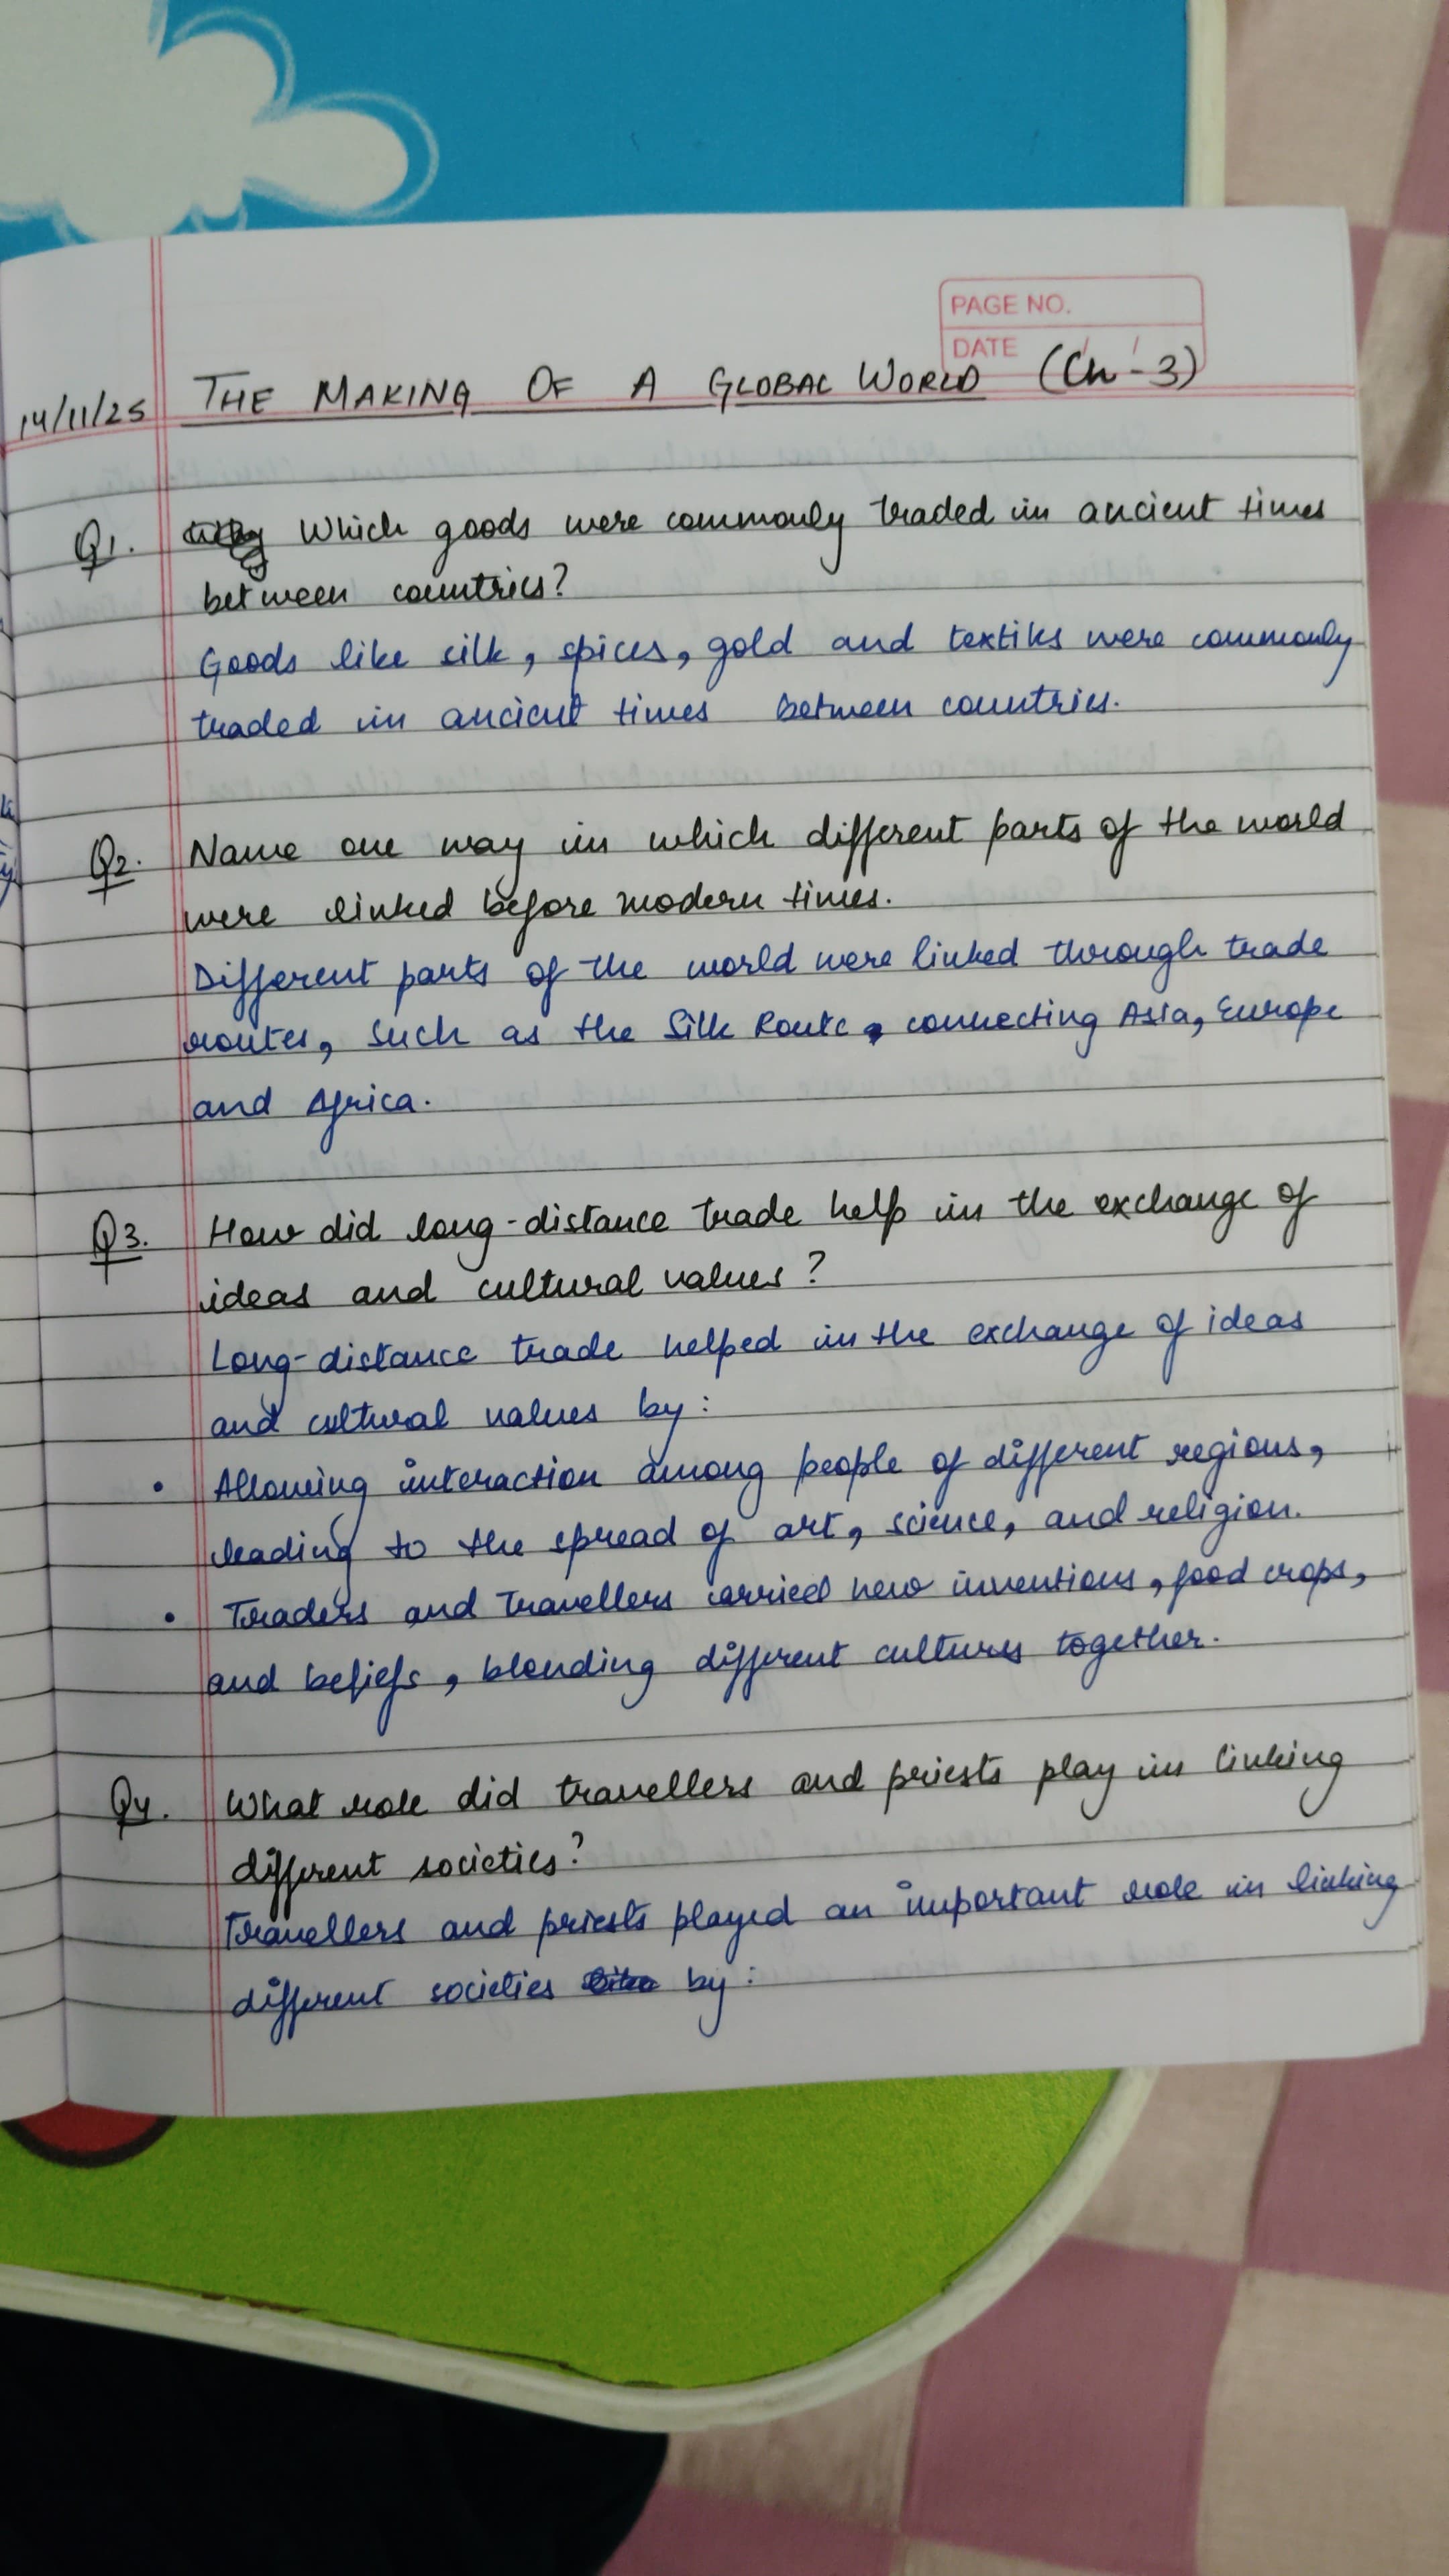 PAGE NO.
DATE / /
14/11/25 THE MAKING OF A GLOBAL WORLD (Ch-3)
Q1. Which goods were commonly traded in ancient times
between countries?
Goods like silk, spices, gold and textiles were commonly
traded in ancient times between countries.
Q2. Name one way in which different parts of the world
were linked before modern times.
Different parts of the world were linked through trade
routes, such as the Silk Route, connecting Asia, Europe
and Africa.
Q3. How did long-distance trade help in the exchange of
ideas and cultural values?
Long-distance trade helped in the exchange of ideas
and cultural values by:
• Allowing interaction among people of different regions,
leading to the spread of art, science, and religion.
• Traders and Travellers carried new inventions, food crops,
and beliefs, blending different cultures together.
Q4. What role did travellers and priests play in linking
different societies?
Travellers and priests played an important role in linking
different societies by: